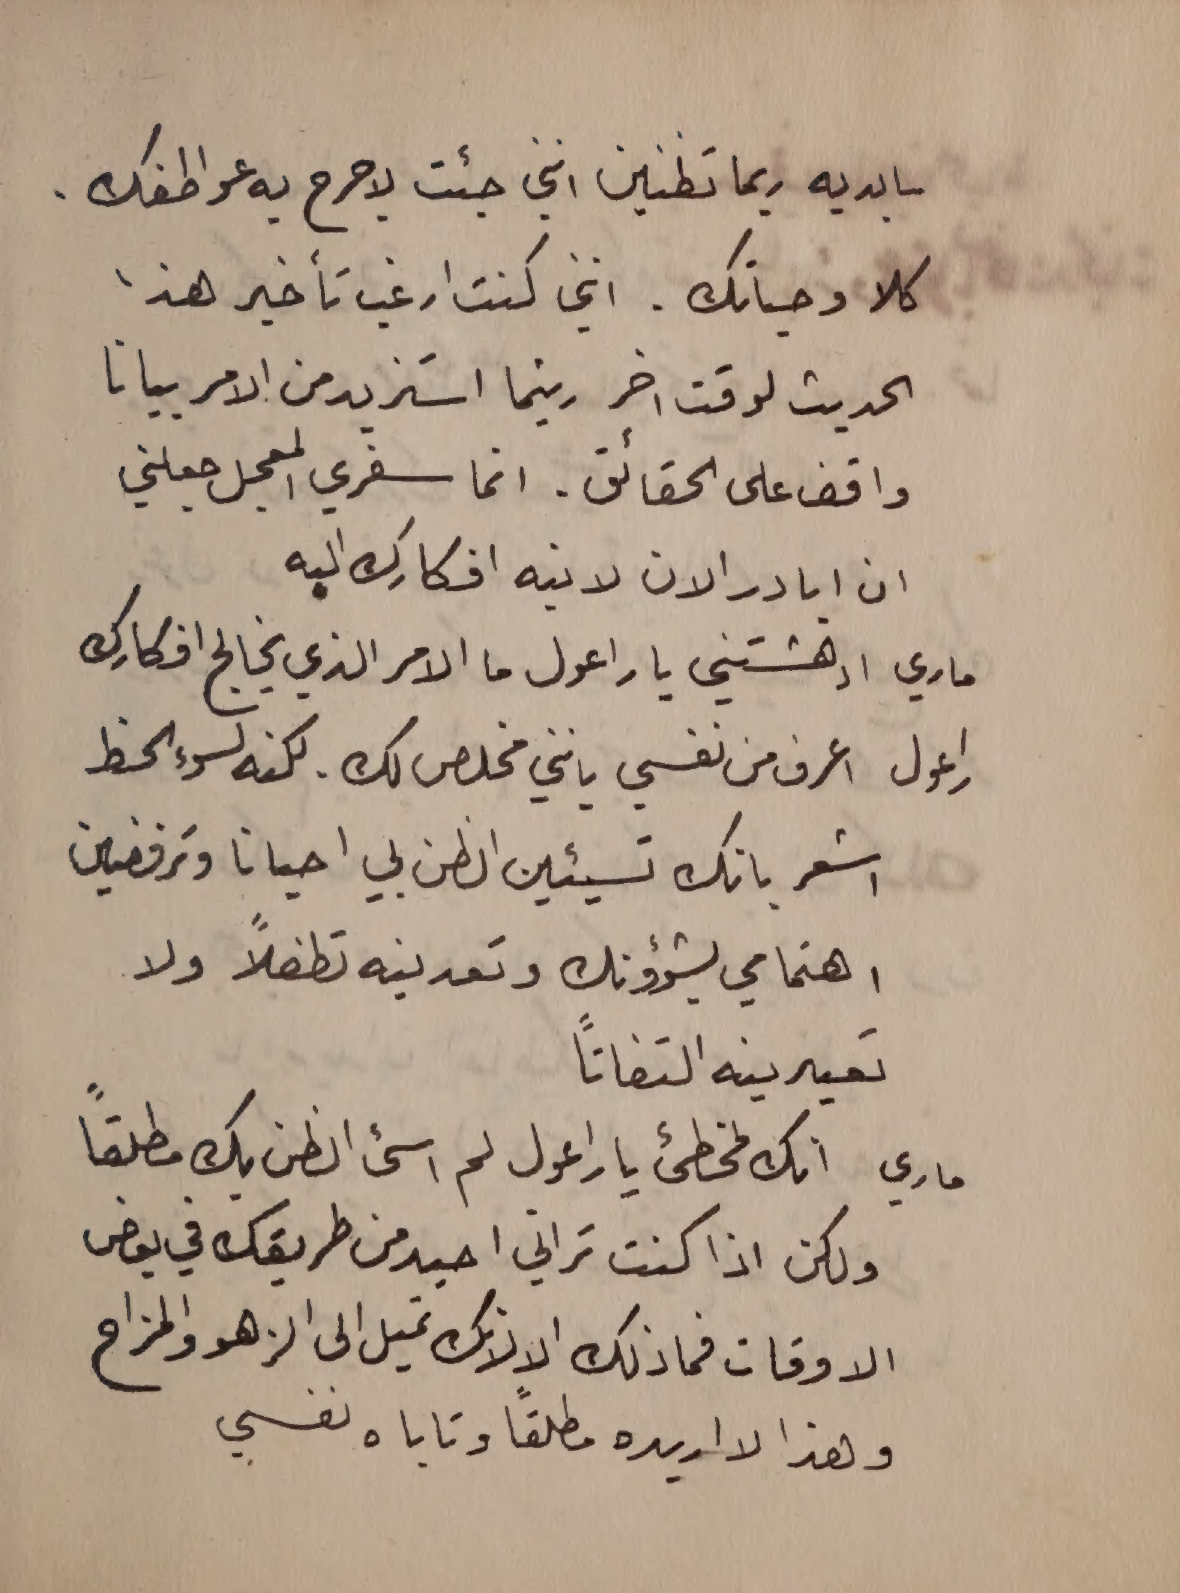 سابديه ربما تظنين انني جئت لاجرح به عواطفك .
كلا وحياتك . انني كنت ارغب تأخير هذا
الحديث لوقت اخر ريثما استزيد من الامر بيانا
واقف على الحقائق . انما سفري المعجل جعلني
ان ابادر الان لانبه افكارك اليه
ماري ادهشتني يا راعول ما الامر الذي يخالج افكارك
راعول اعرف من نفسي بانني مخلص لك . لكنه لسوء الحظ
اشعر بانك تسيئين الظن بي احيانا وترفضين
اهتمامي بشؤونك وتعدينه تطفلاً ولا
تعيرينه التفاتاً
ماري انك مخطئ يا راعول لم اسئ الظن بك مطلقاً
ولكن اذا كنت تراني احيد من طريقك في بعض
الاوقات فما ذلك الا لانك تميل الى الزهو والمزاح
وهذا لا اريده مطلقاً وتاباه نفسي